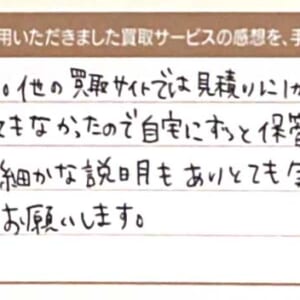 用いただきました買取サービスの感想を、手
。他の買取サイトでは見積りに1か
てもなかったので自宅にずっと保管
細かな説明もありとても
お願いします。